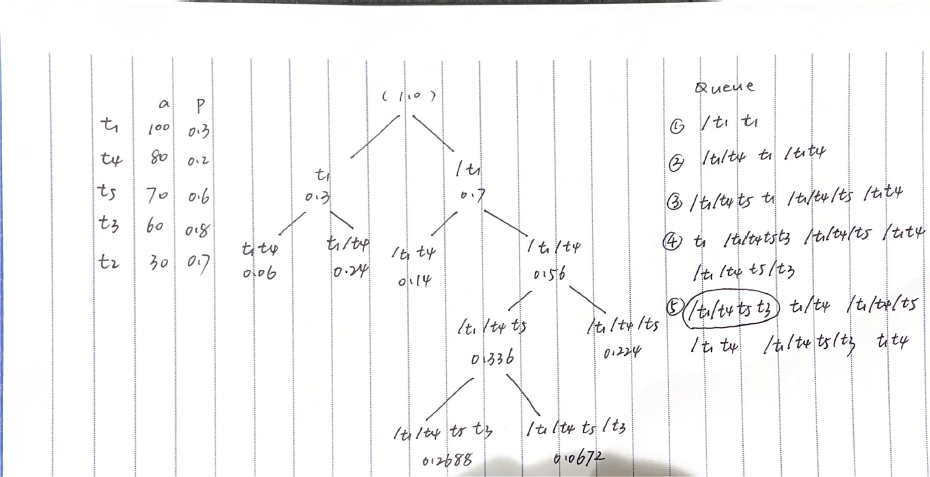 a P
t1 100 0.3
t4 80 0.2
t5 70 0.6
t3 60 0.8
t2 30 0.7
(1.0)
t1 /t1
0.3 0.7
t1t4 t1/t4 /t1t4 /t1/t4
0.06 0.24 0.14 0.56
/t1/t4t5 /t1/t4/t5
0.336 0.224
/t1/t4 t5 t3 /t1/t4 t5/t3
0.2688 0.0672
Queue
① /t1 t1
② /t1/t4 t1 /t1t4
③ /t1/t4t5 t1 /t1/t4/t5 /t1t4
④ t1 /t1/t4t5t3 /t1/t4/t5 /t1t4
/t1/t4 t5/t3
⑤ /t1/t4t5t3 t1/t4 /t1/t4/t5
/t1t4 /t1/t4t5/t3 t1t4